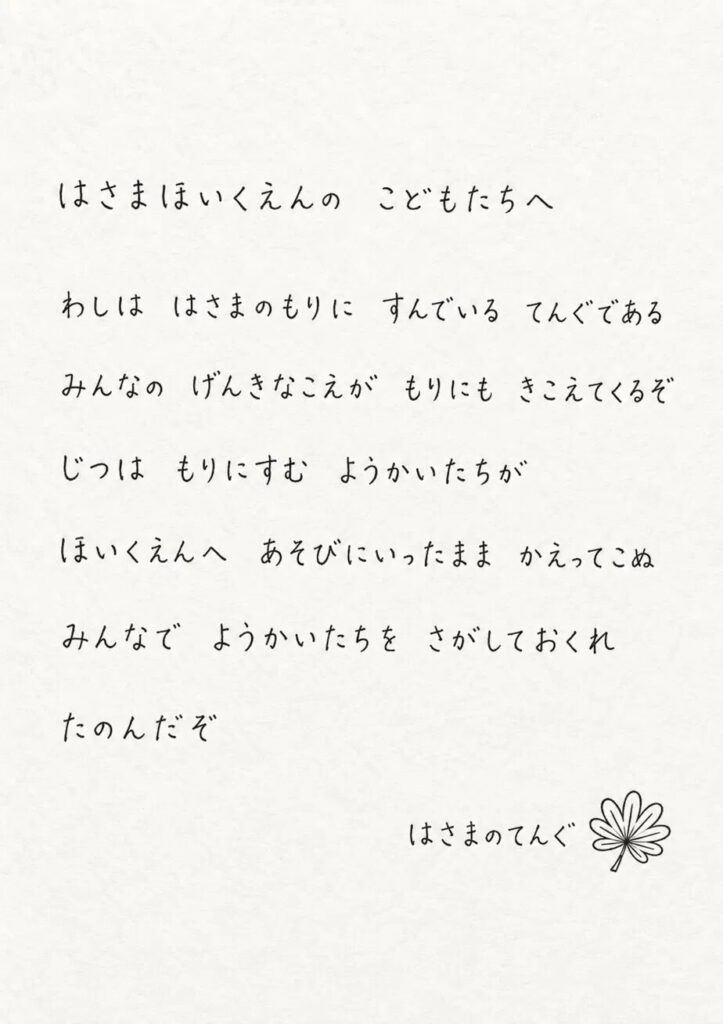 はさまほいくえんの　こどもたちへ
わしは　はさまのもりに　すんでいる　てんぐである
みんなの　げんきなこえが　もりにも　きこえてくるぞ
じつは　もりにすむ　ようかいたちが
ほいくえんへ　あそびにいったまま　かえってこぬ
みんなで　ようかいたちを　さがしておくれ
たのんだぞ
はさまのてんぐ